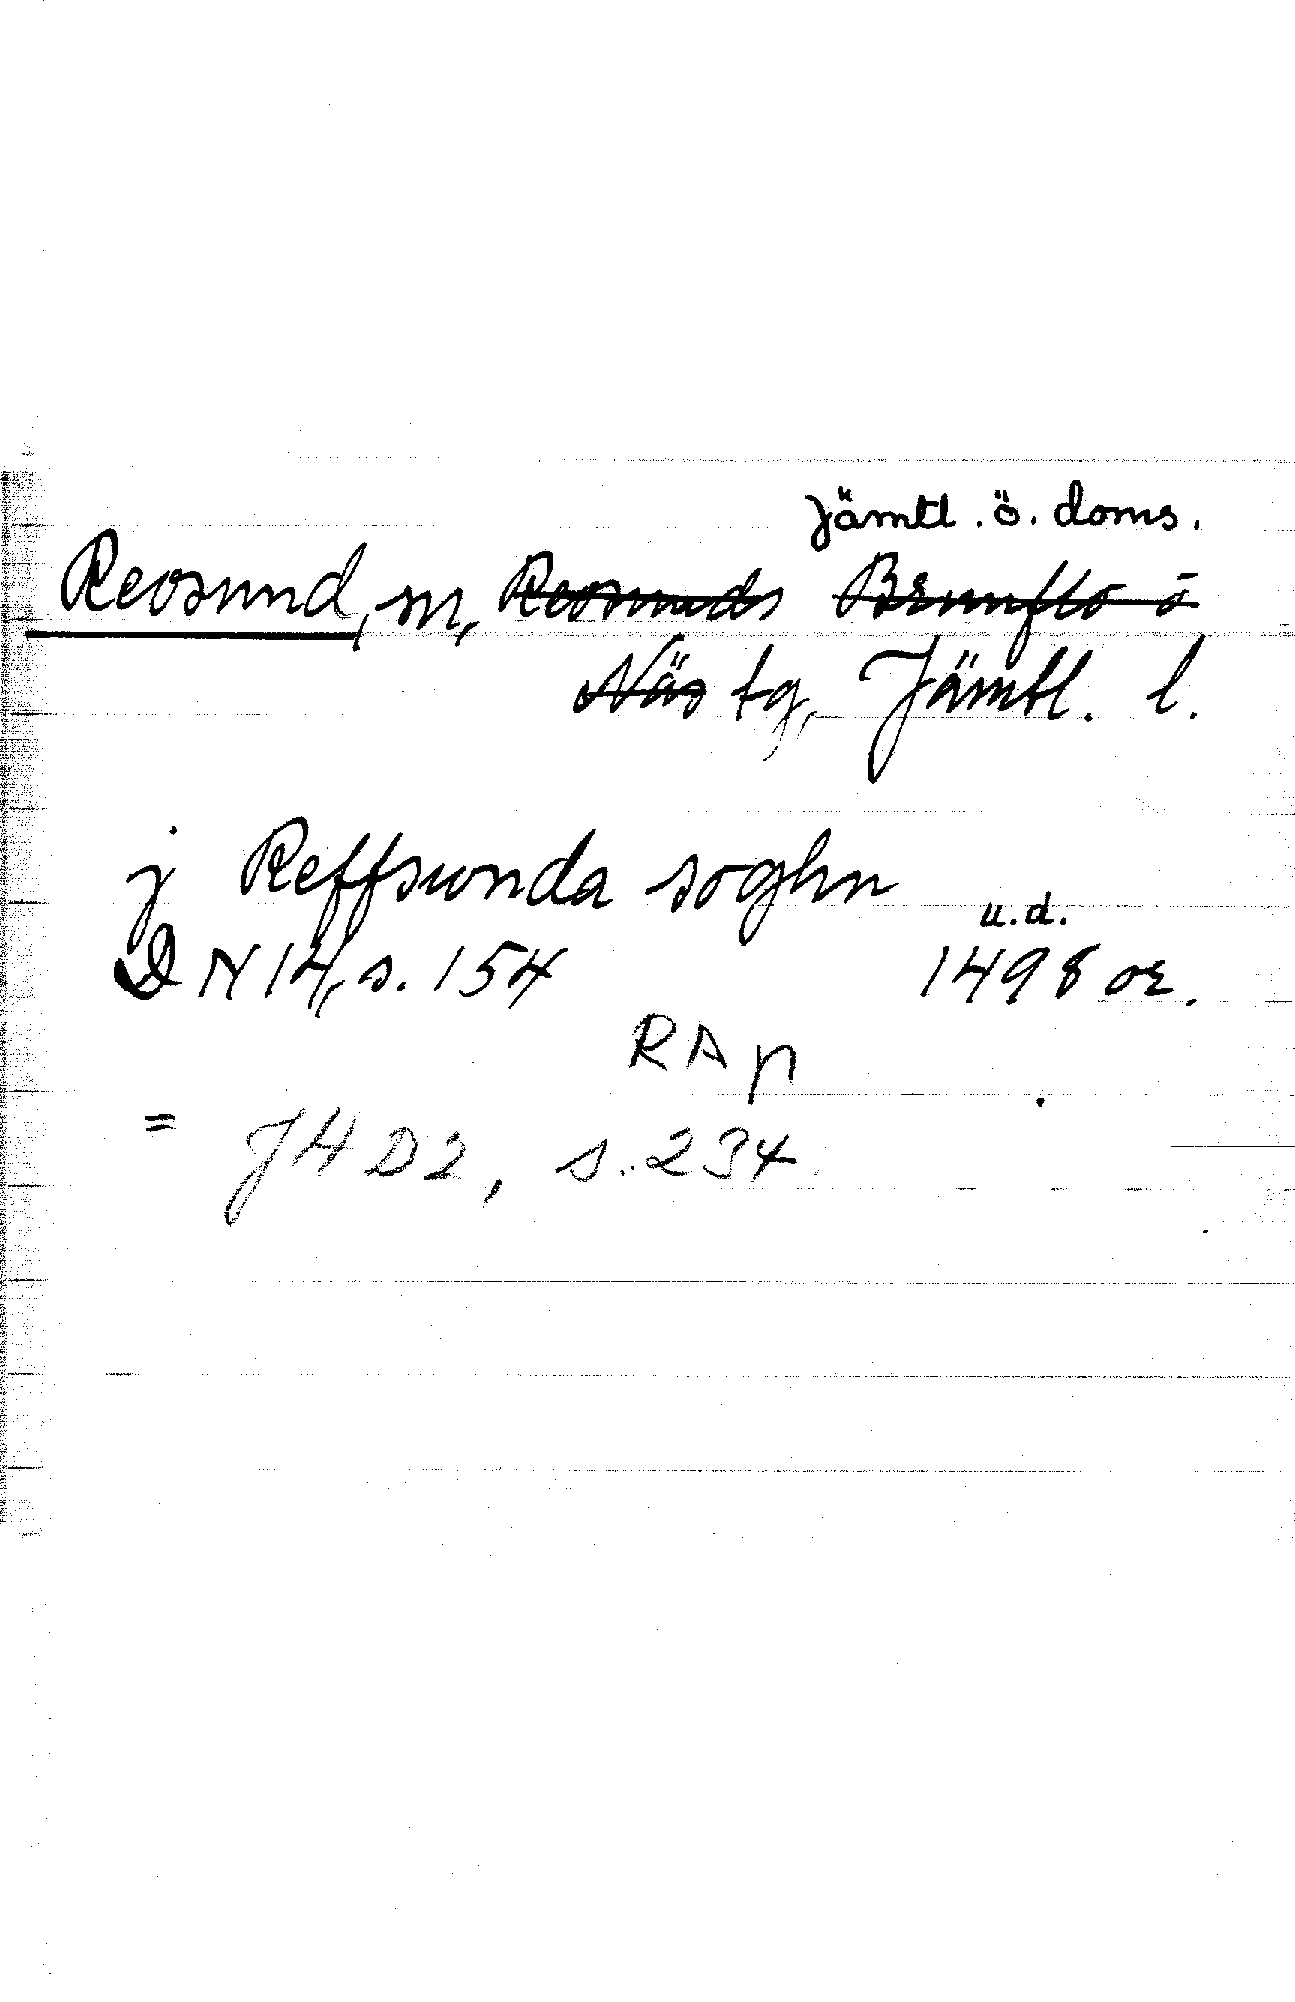 Jämtl. ö. doms.
Revsund, sn, Revsunds Brunflo o
Näs tg, Jämtl. l.
j Reffsunda soghn
u.d.
DN 14, s. 154 1498 or.
RAp
= JHD2, s. 234